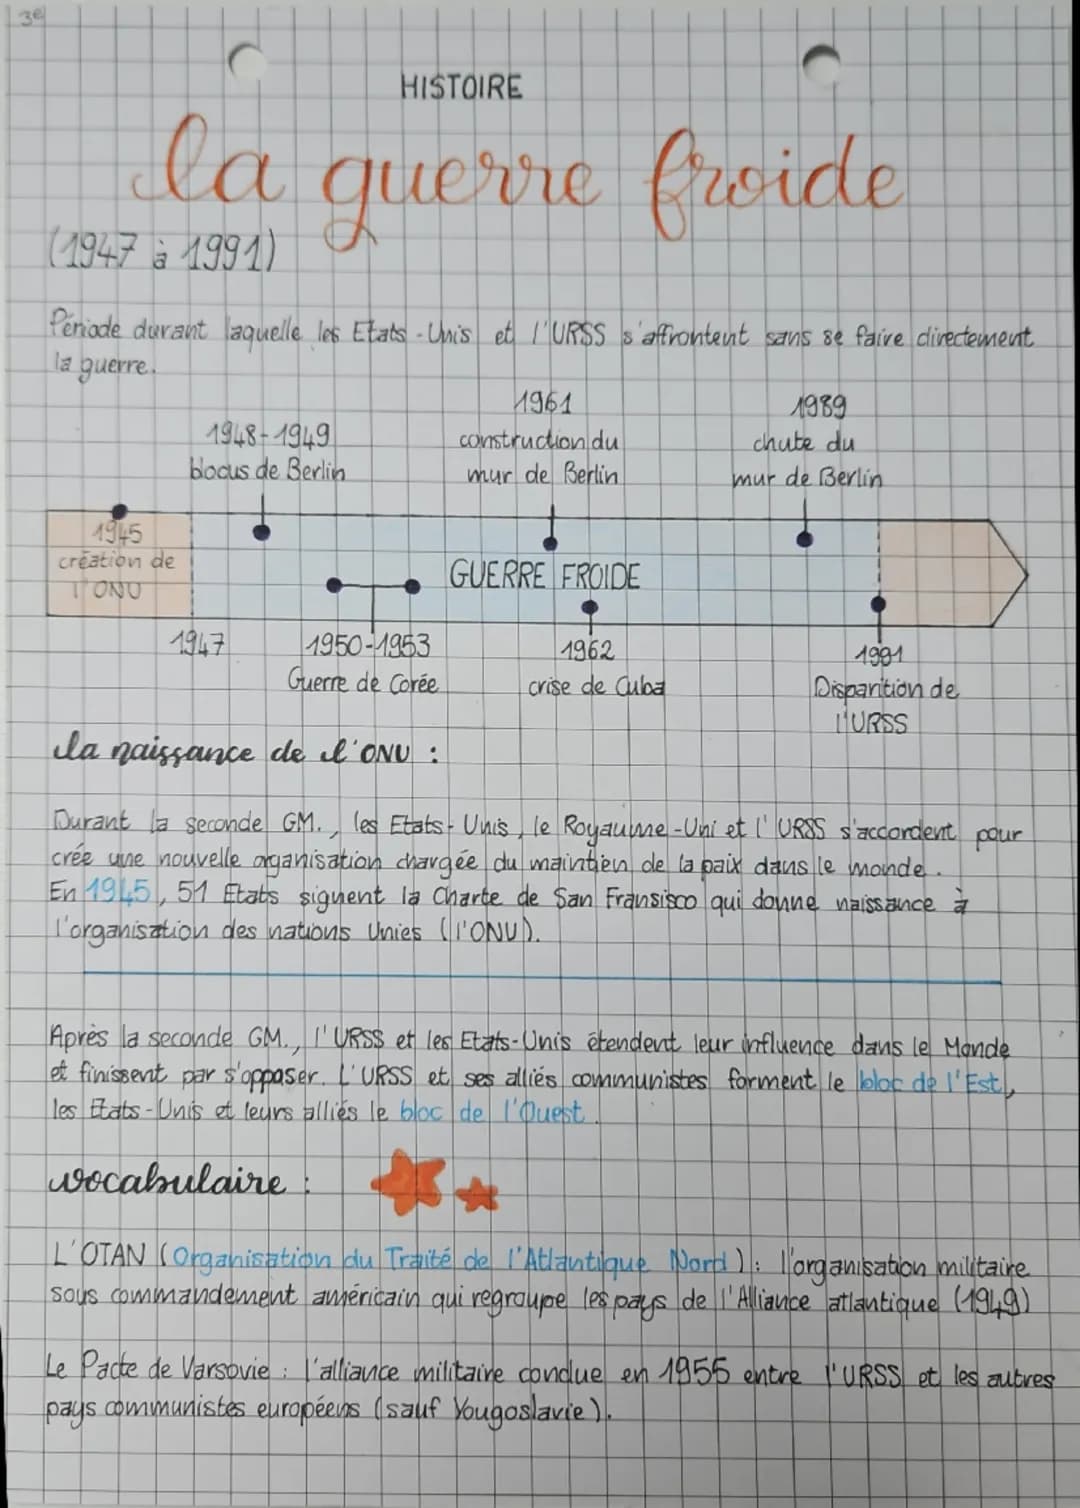 3e
HISTOIRE
la guerre froide
(1947 à 1991)
Période durant laquelle les Etats-Unis et l'URSS s'affrontent sans se faire directement
la guerre.
1948-1949
blocus de Berlin
1961
construction du
mur de Berlin
1989
chute du
mur de Berlin
1945
création de
l'ONU
GUERRE FROIDE
1947
1950-1953
Guerre de Corée
1962
crise de Cuba
1991
Disparition de
l'URSS
la naissance de l'ONU :
Durant la seconde GM., les Etats-Unis, le Royaume-Uni et l'URSS s'accordent pour
crée une nouvelle organisation chargée du maintien de la paix dans le monde.
En 1945, 51 Etats signent la Charte de San Fransisco qui donne naissance à
l'organisation des nations Unies (l'ONU).
Après la seconde GM., l'URSS et les Etats-Unis étendent leur influence dans le Monde
et finissent par s'opposer. L'URSS et ses alliés communistes forment le bloc de l'Est,
les Etats-Unis et leurs alliés le bloc de l'Ouest.
vocabulaire :
L'OTAN (Organisation du Traité de l'Atlantique Nord) : l'organisation militaire
sous commandement américain qui regroupe les pays de l'Alliance atlantique (1949)
Le Pacte de Varsovie : l'alliance militaire conclue en 1955 entre l'URSS et les autres
pays communistes européens (sauf Yougoslavie).